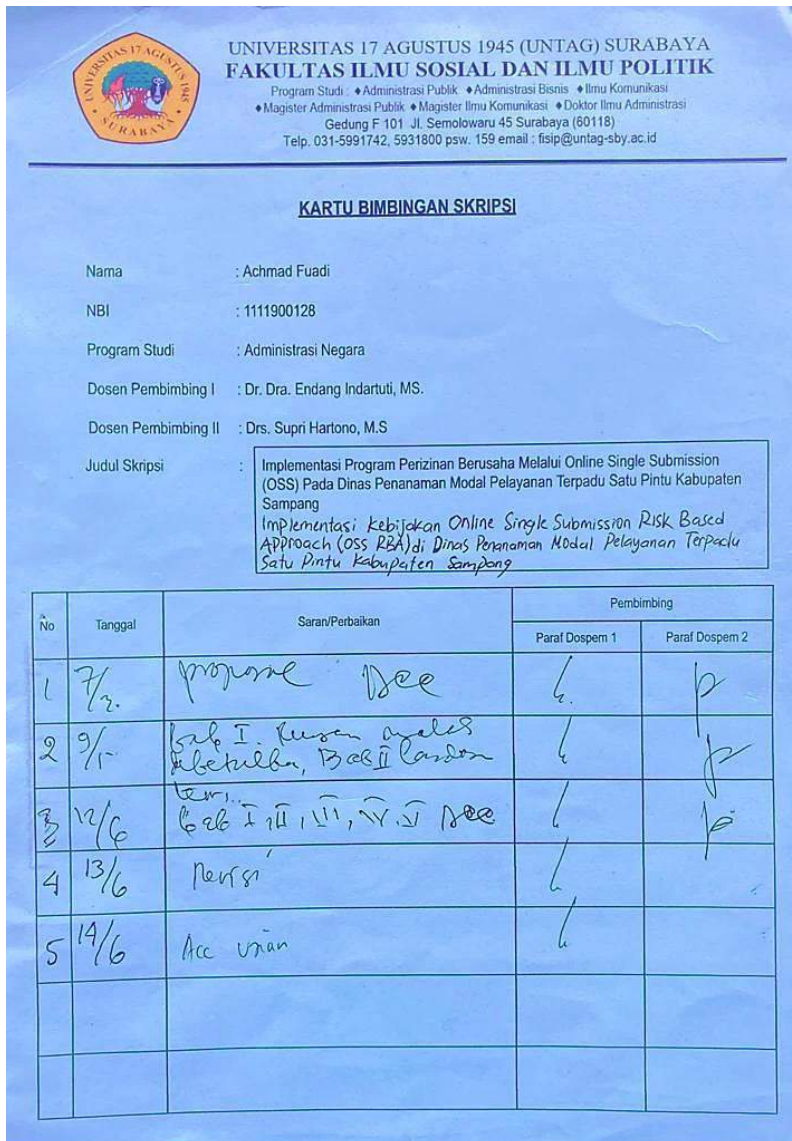 UNIVERSITAS 17 AGUSTUS 1945
SURABAYA
UNIVERSITAS 17 AGUSTUS 1945 (UNTAG) SURABAYA
FAKULTAS ILMU SOSIAL DAN ILMU POLITIK
Program Studi : ♦Administrasi Publik ♦Administrasi Bisnis ♦Ilmu Komunikasi
♦Magister Administrasi Publik ♦Magister Ilmu Komunikasi ♦Doktor Ilmu Administrasi
Gedung F 101 Jl. Semolowaru 45 Surabaya (60118)
Telp. 031-5991742, 5931800 psw. 159 email : fisip@untag-sby.ac.id
KARTU BIMBINGAN SKRIPSI
Nama : Achmad Fuadi
NBI : 1111900128
Program Studi : Administrasi Negara
Dosen Pembimbing I : Dr. Dra. Endang Indartuti, MS.
Dosen Pembimbing II : Drs. Supri Hartono, M.S
Judul Skripsi : Implementasi Program Perizinan Berusaha Melalui Online Single Submission
(OSS) Pada Dinas Penanaman Modal Pelayanan Terpadu Satu Pintu Kabupaten
Sampang
Implementasi Kebijakan Online Single Submission Risk Based
Approach (OSS RBA) di Dinas Penanaman Modal Pelayanan Terpadu
Satu Pintu Kabupaten Sampang
No Tanggal Saran/Perbaikan Pembimbing
Paraf Dospem 1 Paraf Dospem 2
1
2 Bab I. Bab II
3 12/6 bab I, II, III, IV, V Acc
4 13/6 Revisi
5 14/6 Acc Ujian